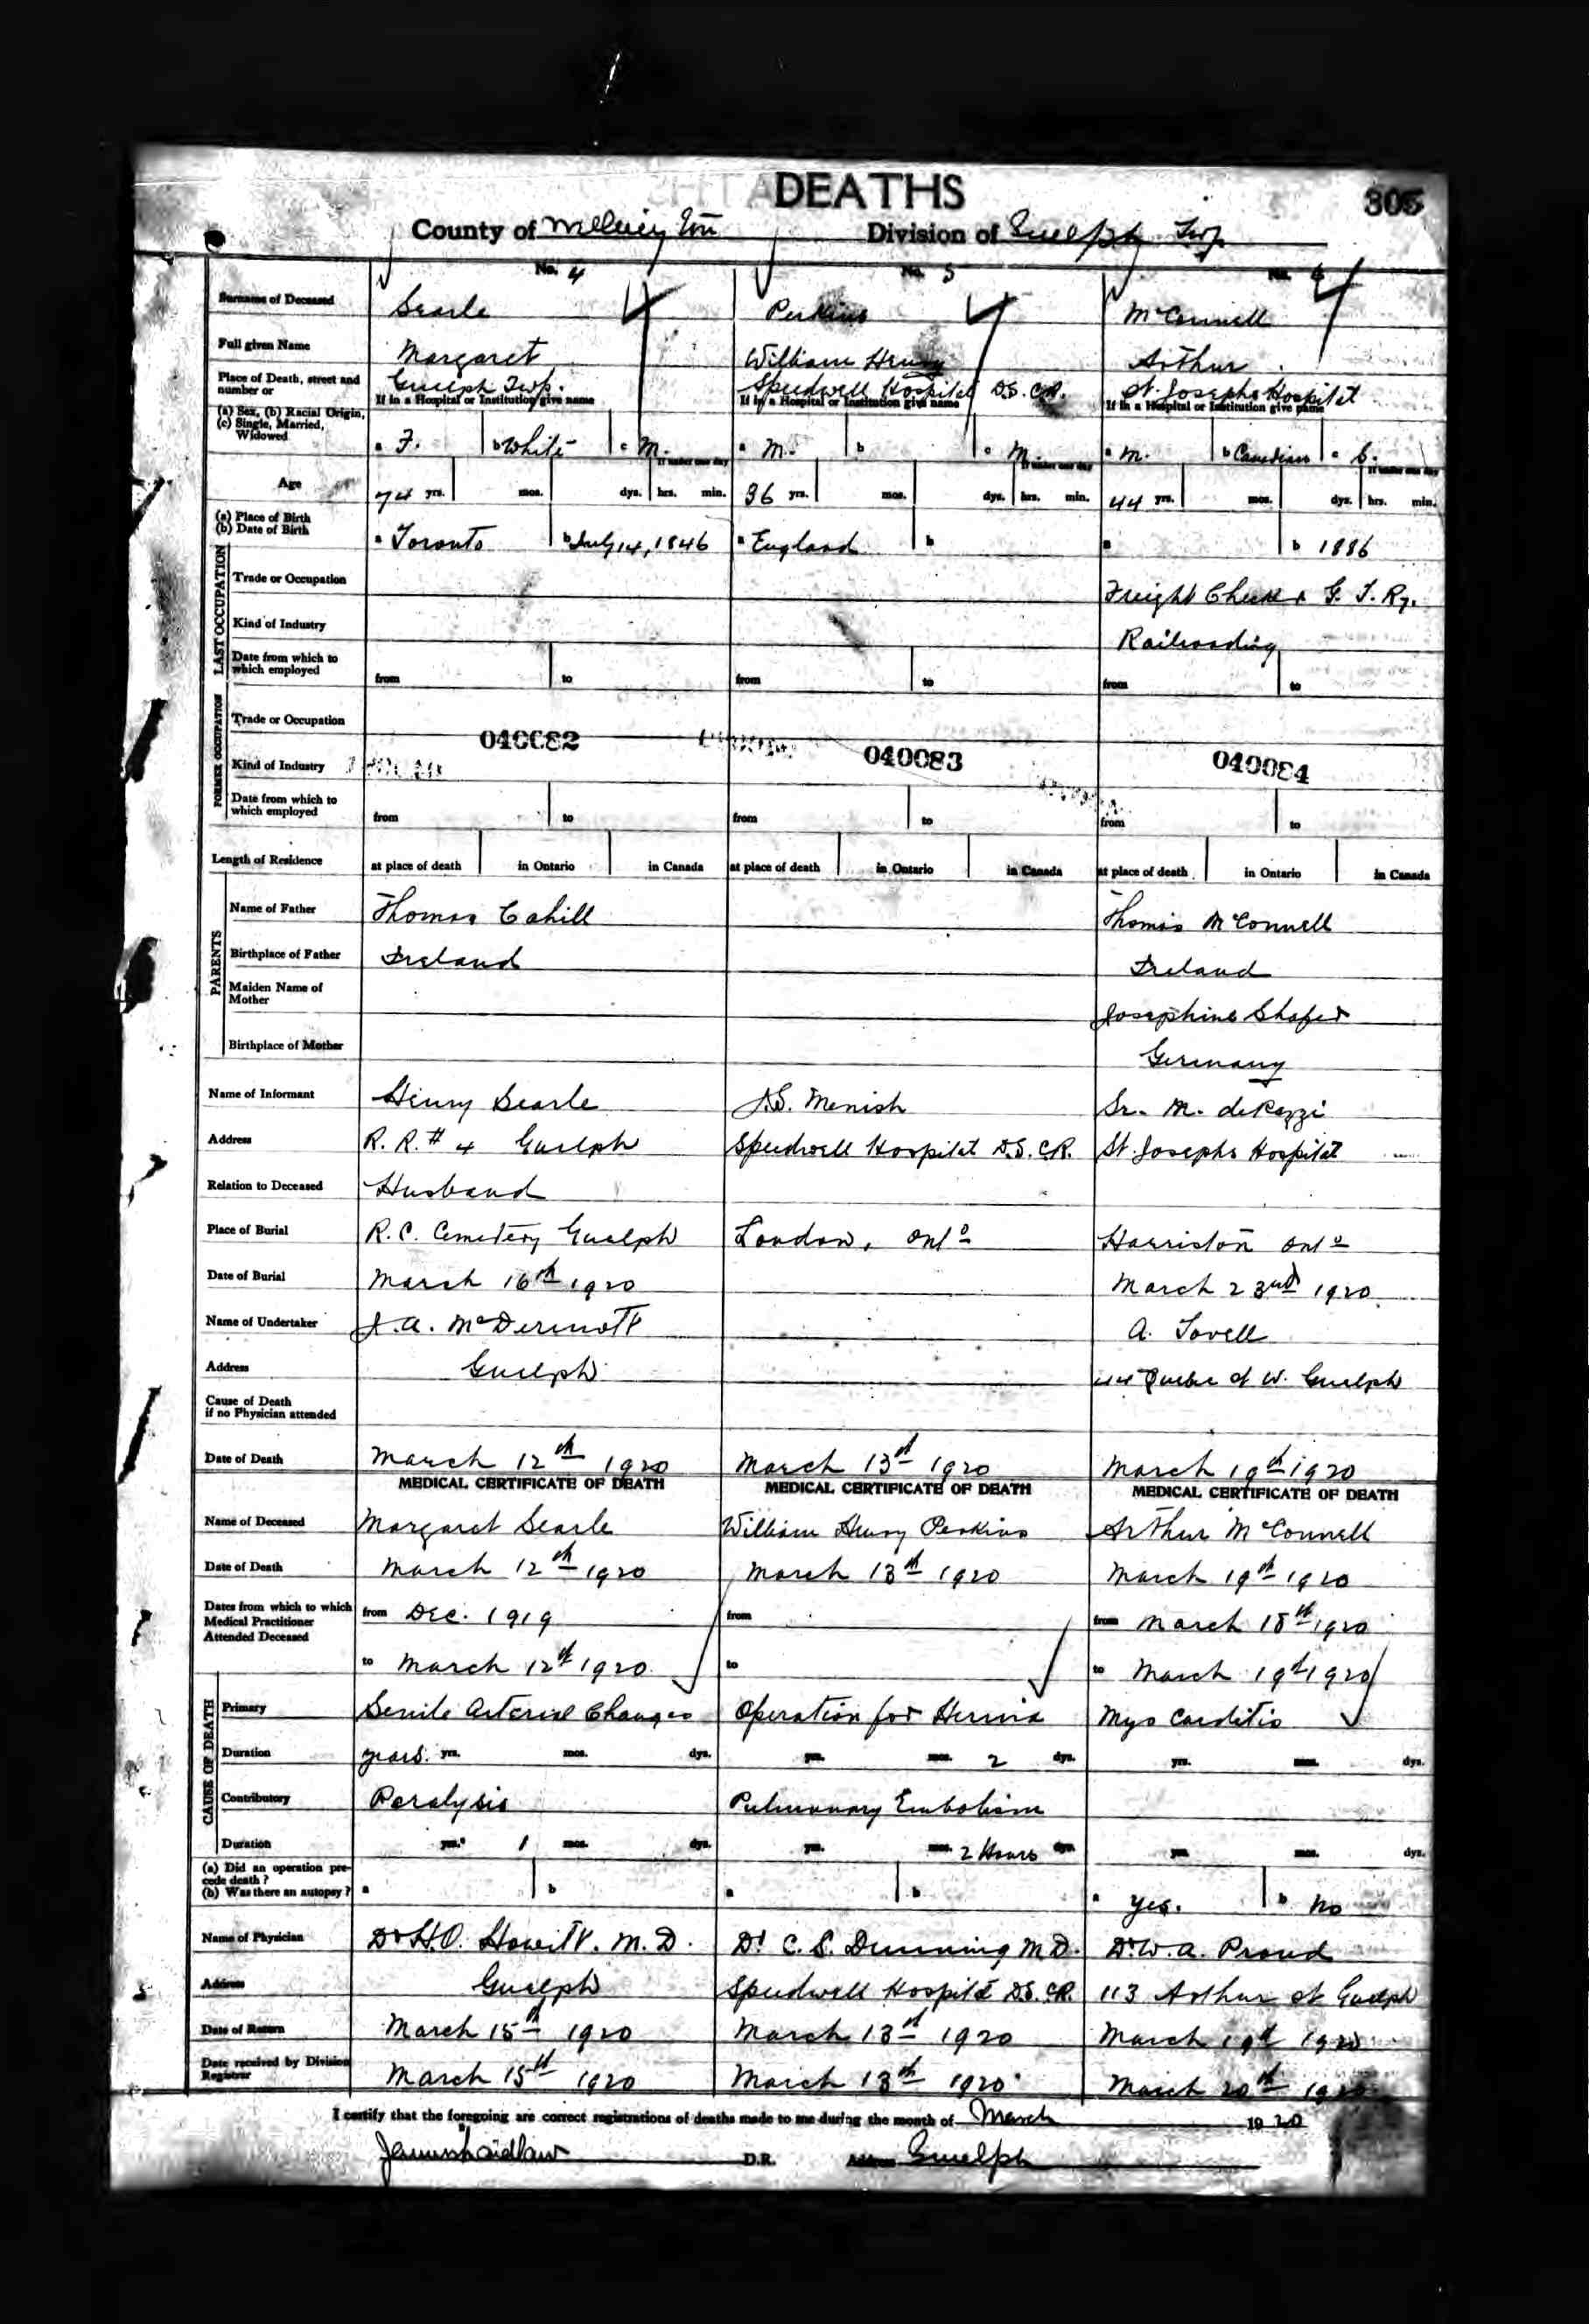 DEATHS
305
County of Wellington Division of Guelph Twp.
No. 4 No. 5 No. 6
Surname of Deceased Searle Perkins McConnell
Full given Name Margaret William Henry Arthur
Place of Death, street and number or Guelph Twp. Speedwell Hospital D.S.C.R. St. Josephs Hospital
If in a Hospital or Institution give name If in a Hospital or Institution give name If in a Hospital or Institution give name
(a) Sex, (b) Racial Origin, (c) Single, Married, Widowed a F. b White c M. a M. b c M. a M. b Canadian c S.
If under one day If under one day If under one day
Age 74 yrs. mos. dys. hrs. min. 36 yrs. mos. dys. hrs. min. 44 yrs. mos. dys. hrs. min.
(a) Place of Birth (b) Date of Birth a Toronto b July 14, 1846 a England b a b 1886
LAST OCCUPATION
Trade or Occupation Freight Checker G. T. Ry.
Kind of Industry Railroading
Date from which to which employed from to from to from to
FORMER OCCUPATION
Trade or Occupation
040082 040083 040084
Kind of Industry
Date from which to which employed from to from to from to
Length of Residence at place of death in Ontario in Canada at place of death in Ontario in Canada at place of death in Ontario in Canada
PARENTS
Name of Father Thomas Cahill Thomas McConnell
Birthplace of Father Ireland Ireland
Maiden Name of Mother Josephine Shafer
Birthplace of Mother Germany
Name of Informant Henry Searle J.S. Menish Sr. M. dePazzi
Address R. R. # 4 Guelph Speedwell Hospital D.S.C.R. St. Josephs Hospital
Relation to Deceased Husband
Place of Burial R. C. Cemetery Guelph London, Onto Harriston Onto
Date of Burial March 16th 1920 March 23rd 1920
Name of Undertaker J. A. McDermott A. Tovell
Address Guelph 44 Quebec St W. Guelph
Cause of Death if no Physician attended
Date of Death March 12th 1920 March 13th 1920 March 19th 1920
MEDICAL CERTIFICATE OF DEATH MEDICAL CERTIFICATE OF DEATH MEDICAL CERTIFICATE OF DEATH
Name of Deceased Margaret Searle William Henry Perkins Arthur McConnell
Date of Death March 12th 1920 March 13th 1920 March 19th 1920
Dates from which to which Medical Practitioner Attended Deceased from Dec. 1919 from from March 18th 1920
to March 12th 1920 to to March 19th 1920
CAUSE OF DEATH
Primary Senile Arterial Changes Operation for Hernia Myo Carditis
Duration years. yrs. mos. dys. yrs. mos. 2 dys. yrs. mos. dys.
Contributory Paralysis Pulmonary Embolism
Duration yrs. 1 mos. dys. yrs. mos. 2 Hours dys. yrs. mos. dys.
(a) Did an operation precede death? (b) Was there an autopsy? a b a b a Yes. b No
Name of Physician Dr H.O. Howitt. M.D. Dr C. S. Dunning M.D. Dr. W. A. Proud
Address Guelph Speedwell Hospital D.S.C.R. 113 Arthur St Guelph
Date of Return March 15th 1920 March 13th 1920 March 19th 1920
Date received by Division Registrar March 15th 1920 March 13th 1920 March 20th 1920
I certify that the foregoing are correct registrations of deaths made to me during the month of March 1920
James Laidlaw D.R. Address Guelph